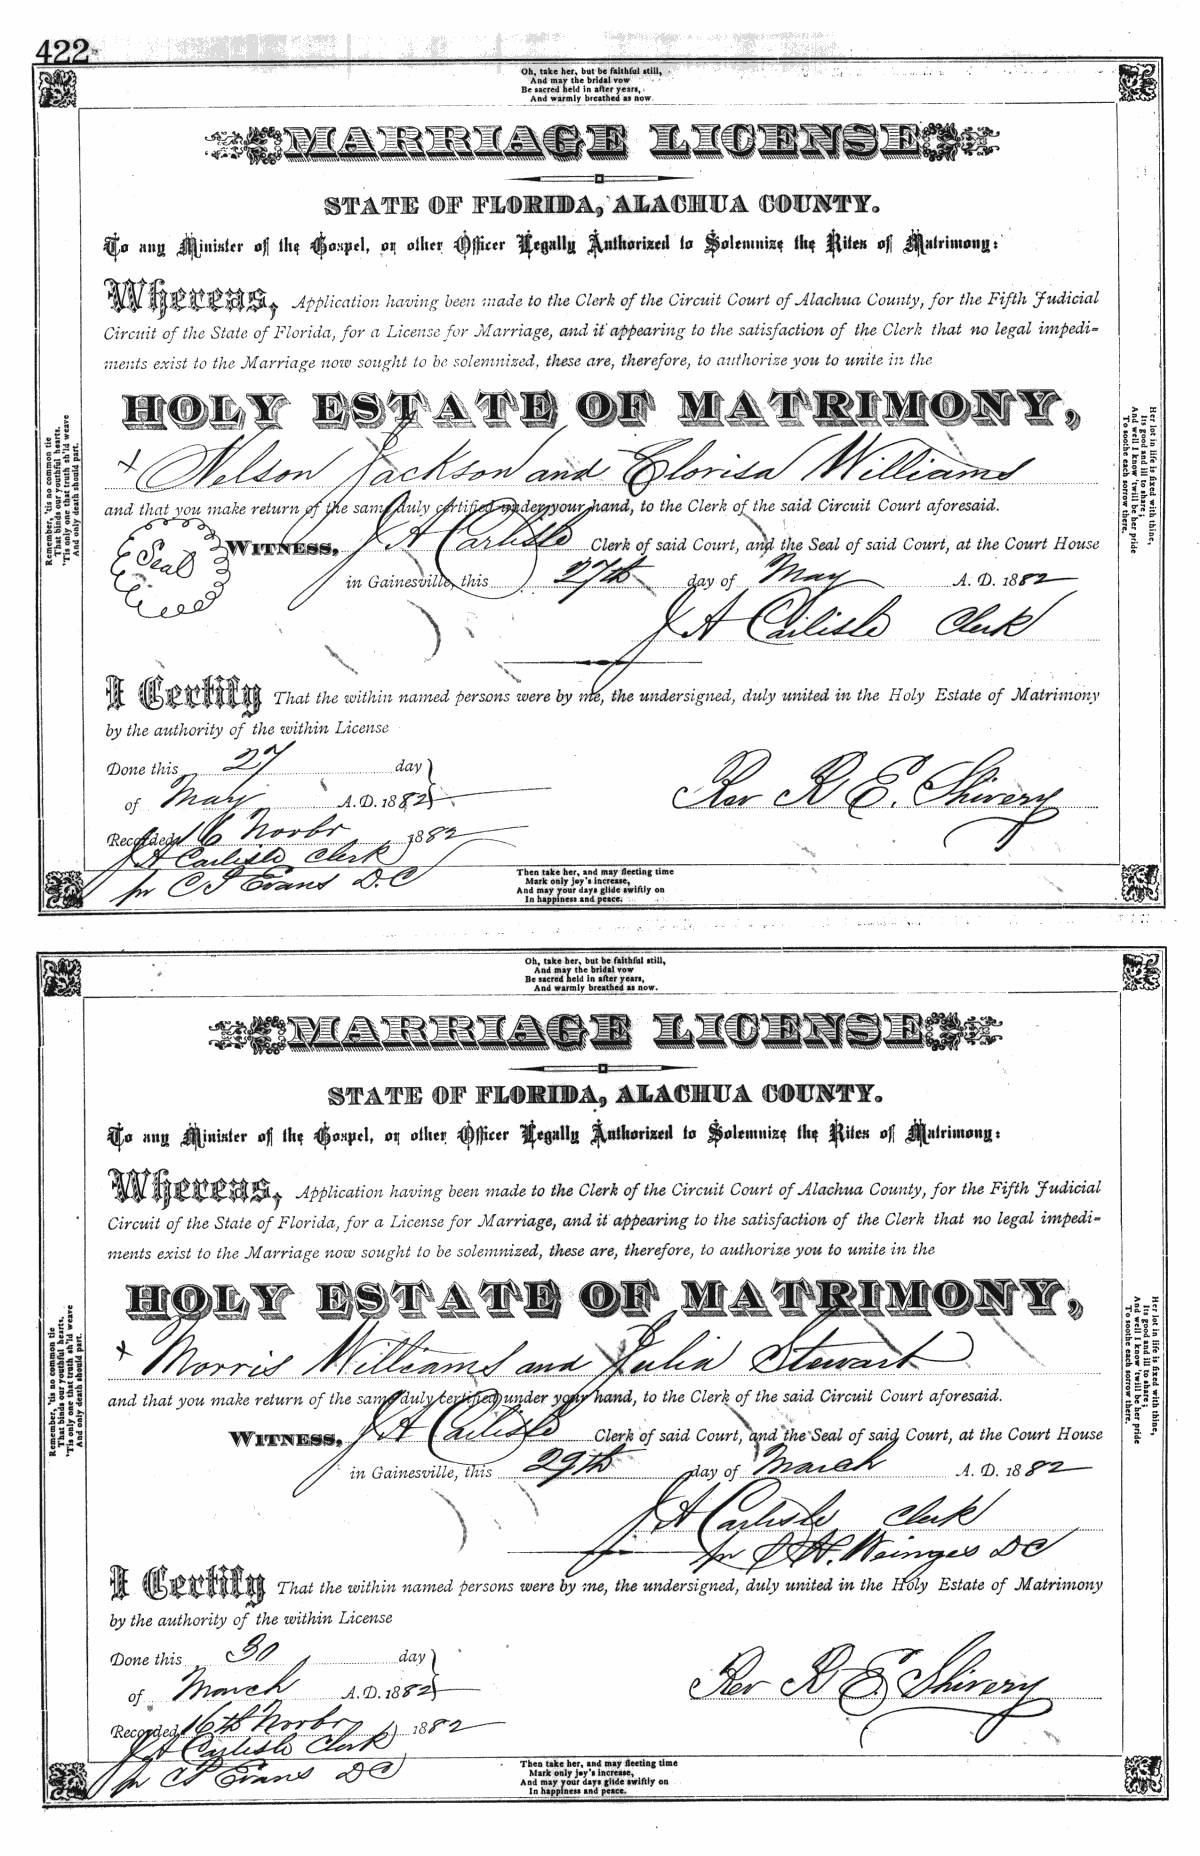 422
Oh, take her, but be faithful still,
And may the bridal vow
Be sacred held in after years,
And warmly breathed as now.
MARRIAGE LICENSE
STATE OF FLORIDA, ALACHUA COUNTY.
To any Minister of the Gospel, or other Officer Legally Authorized to Solemnize the Rites of Matrimony:
Whereas, Application having been made to the Clerk of the Circuit Court of Alachua County, for the Fifth Judicial
Circuit of the State of Florida, for a License for Marriage, and it appearing to the satisfaction of the Clerk that no legal impedi-
ments exist to the Marriage now sought to be solemnized, these are, therefore, to authorize you to unite in the
HOLY ESTATE OF MATRIMONY,
x Nelson Jackson and Clorisa Williams
and that you make return of the same duly certified under your hand, to the Clerk of the said Circuit Court aforesaid.
Seal
WITNESS, J A Carlisle Clerk of said Court, and the Seal of said Court, at the Court House
in Gainesville, this 27th day of May A. D. 1882
J A Carlisle Clerk
I Certify That the within named persons were by me, the undersigned, duly united in the Holy Estate of Matrimony
by the authority of the within License
Done this 27 day
of May A.D. 1882
Rev R E. Shivery
Recorded 16 Novbr 1882
J A Carlisle Clerk
pr C P Evans D.C
Then take her, and may fleeting time
Mark only joy's increase,
And may your days glide swiftly on
In happiness and peace.
Remember, 'tis no common tie
That binds our youthful hearts,
'Tis only one that truth sh'ld weave
And only death should part.
Her lot in life is fixed with thine,
Its good and ill to share;
And well I know 'twill be her pride
To soothe each sorrow there.
Oh, take her, but be faithful still,
And may the bridal vow
Be sacred held in after years,
And warmly breathed as now.
MARRIAGE LICENSE
STATE OF FLORIDA, ALACHUA COUNTY.
To any Minister of the Gospel, or other Officer Legally Authorized to Solemnize the Rites of Matrimony:
Whereas, Application having been made to the Clerk of the Circuit Court of Alachua County, for the Fifth Judicial
Circuit of the State of Florida, for a License for Marriage, and it appearing to the satisfaction of the Clerk that no legal impedi-
ments exist to the Marriage now sought to be solemnized, these are, therefore, to authorize you to unite in the
HOLY ESTATE OF MATRIMONY,
x Morris Williams and Julia Stewart
and that you make return of the same duly certified under your hand, to the Clerk of the said Circuit Court aforesaid.
WITNESS, J A Carlisle Clerk of said Court, and the Seal of said Court, at the Court House
in Gainesville, this 29th day of March A. D. 1882
J A Carlisle Clerk
pr H. Weinges DC
I Certify That the within named persons were by me, the undersigned, duly united in the Holy Estate of Matrimony
by the authority of the within License
Done this 30 day
of March A.D. 1882
Rev R E. Shivery
Recorded 16th Novbr 1882
J A Carlisle Clerk
pr C P Evans DC
Then take her, and may fleeting time
Mark only joy's increase,
And may your days glide swiftly on
In happiness and peace.
Remember, 'tis no common tie
That binds our youthful hearts,
'Tis only one that truth sh'ld weave
And only death should part.
Her lot in life is fixed with thine,
Its good and ill to share;
And well I know 'twill be her pride
To soothe each sorrow there.